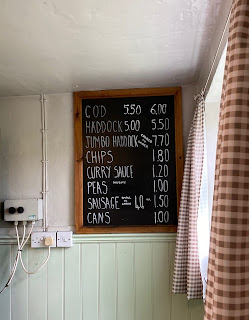 COD 5.50 6.00
HADDOCK 5.00 5.50
JUMBO HADDOCK 7.70
CHIPS 1.80
CURRY SAUCE 1.20
PEAS 1.00
SAUSAGE 1.50
CANS 1.00